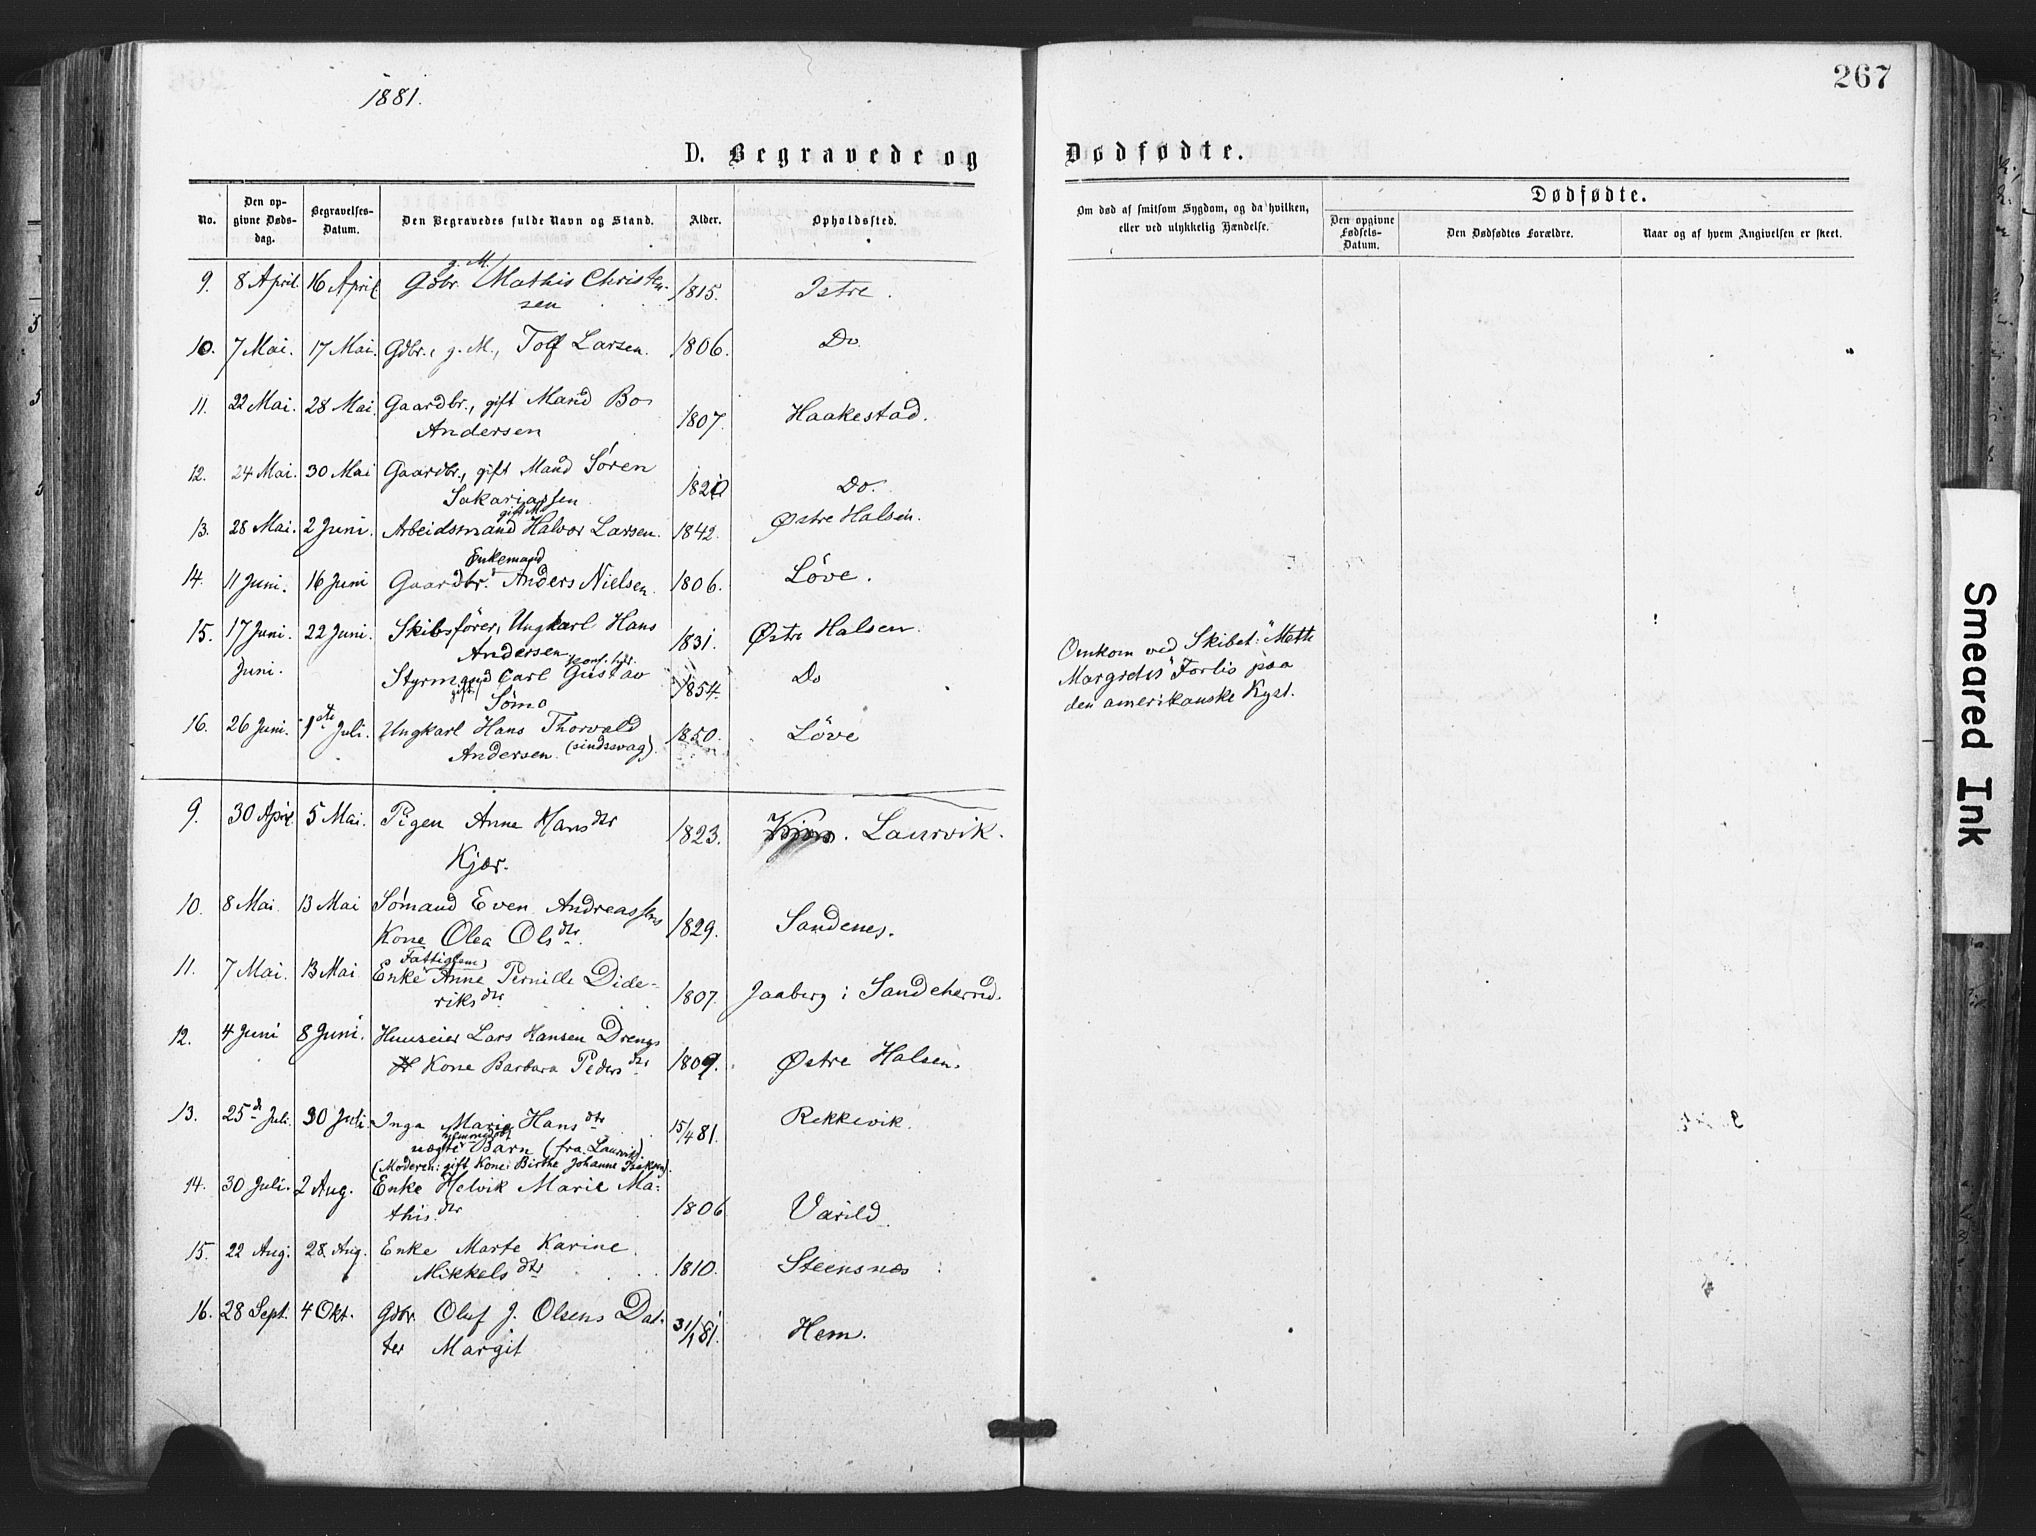 1881.
267
D. Begravede og Dødfødte.
No.
Den opgivne Dødsdag.
Begravelses-Datum.
Den Begravedes fulde Navn og Stand.
Alder.
Opholdssted.
Om død af smitsom Sygdom, og da hvilken,
eller ved ulykkelig Hændelse.
Dødfødte.
Den opgivne Fødsels-Datum.
Den Dødfødtes Forældre.
Naar og af hvem Angivelsen er skeet.
9. 8 April 16 April Gdbr. g. M. Mathis Christen-
sen 1815. Istre.
10. 7 Mai. 17 Mai. Gdbr., g. M., Tolf Larsen. 1806. Do.
11. 22 Mai. 28 Mai. Gaardbr., gift Mand Bo
Andersen 1807. Haakestad.
12. 24 Mai. 30 Mai Gaardbr., gift Mand Søren
Sakariassen Do.
13. 28 Mai. 2 Juni. Arbeidsmand gift M. Halvor Larsen. 1842. Østre Halsen.
14. 11 Juni. 16 Juni Gaardbr. Enkemand Anders Nielsen. 1806. Løve.
15. 17 Juni. 22 Juni. Skibsfører, Ungkarl Hans
Andersen. 1831. Østre Halsen.
Juni. Styrmand gift Carl Gustav
Sømo 1854. Do
Omkom ved Skibet: "Mette
Margretes" Forlis paa
den amerikanske Kyst.
16. 26 Juni. 1ste Juli. Ungkarl Hans Thorvald
Andersen (sindssvag). 1850. Løve
9. 30 April 5 Mai. Pigen Anne Hansdtr
Kjær. 1823. Laurvik.
10. 8 Mai. 13 Mai Sømand Even Andreassens
Kone Olea Olsdtr. 1829. Sandenes.
11. 7 Mai. 13 Mai Enke Fattiglem Anne Pernille Dide-
riksdtr 1807. Jaaberg i Sandeherred.
12. 4 Juni 8 Juni. Huuseier Lars Hansen Drengs
Kone Barbara Pedersdtr 1809. Østre Halsen.
13. 25de Juli. 30 Juli. Inga Marie Hansdtr
uægte Barn (fra Laurvik). 15/4 81. Rekkevik.
(Moderen: gift Kone: Birthe Johanne Isaksen).
14. 30 Juli. 2 Aug. Enke Helvik Marie Ma-
this.dtr 1806 Varild.
15. 22 Aug. 28. Aug. Enke Marte Karine
Mikkelsdtr 1810. Steensnæs
16. 28 Sept. 4 Okt. Gdbr. Oluf J. Olsens Dat-
ter Margit 31/1 81. Hem.
Smeared Ink